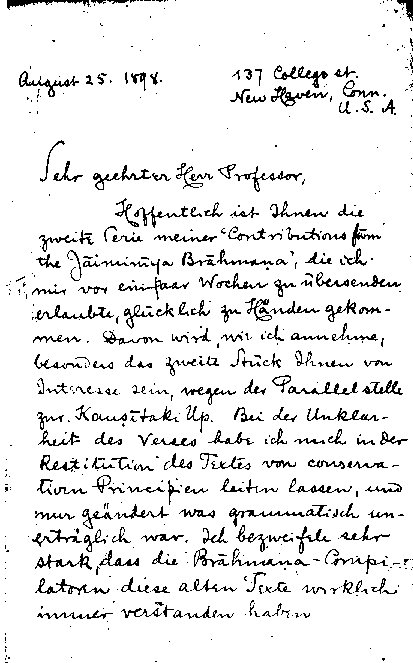 August 25. 1898.
137 College st.
New Haven, Conn.
U. S. A.
Sehr geehrter Herr Professor,
Hoffentlich ist Ihnen die
zweite Serie meiner 'Contributions from
the Jāiminīya Brāhmana', die ich
mir vor ein paar Wochen zu übersenden
erlaubte, glücklich zu Händen gekom-
men. Davon wird, wie ich annehme,
besonders das zweite Stück Ihnen von
Interesse sein, wegen der Parallelstelle
zur Kauṣītaki Up. Bei der Unklar-
heit des Verses habe ich mich in der
Restitution des Textes von conserva-
tiven Principien leiten lassen, und
nur geändert was grammatisch un-
erträglich war. Ich bezweifele sehr
stark, dass die Brāhmana-Compi-
latoren diese alten Texte wirklich
immer verstanden haben